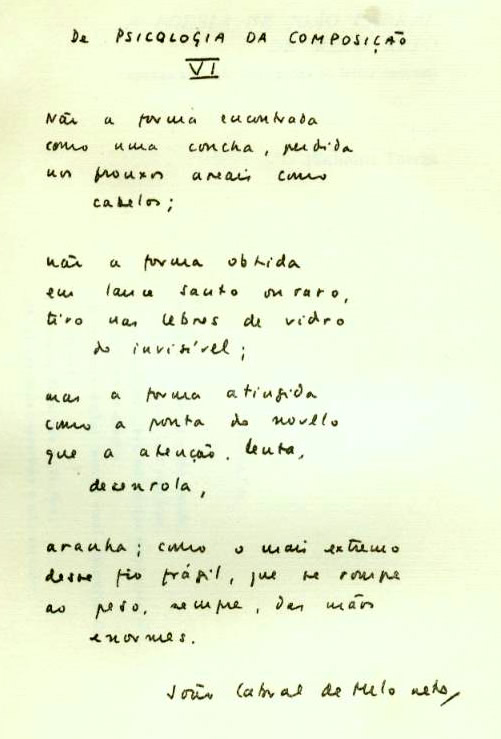 De PSICOLOGIA DA COMPOSIÇÃO
VI
Não a forma encontrada
como uma concha, perdida
nos frouxos areais como
cabelos;
não a forma obtida
em lance santo ou raro,
tiro nas lebres de vidro
do invisível;
mas a forma atingida
como a ponta do novelo
que a atenção, lenta,
desenrola,
aranha; como o mais extremo
desse fio frágil, que se rompe
ao peso, sempre, das mãos
enormes.
João Cabral de Melo Neto